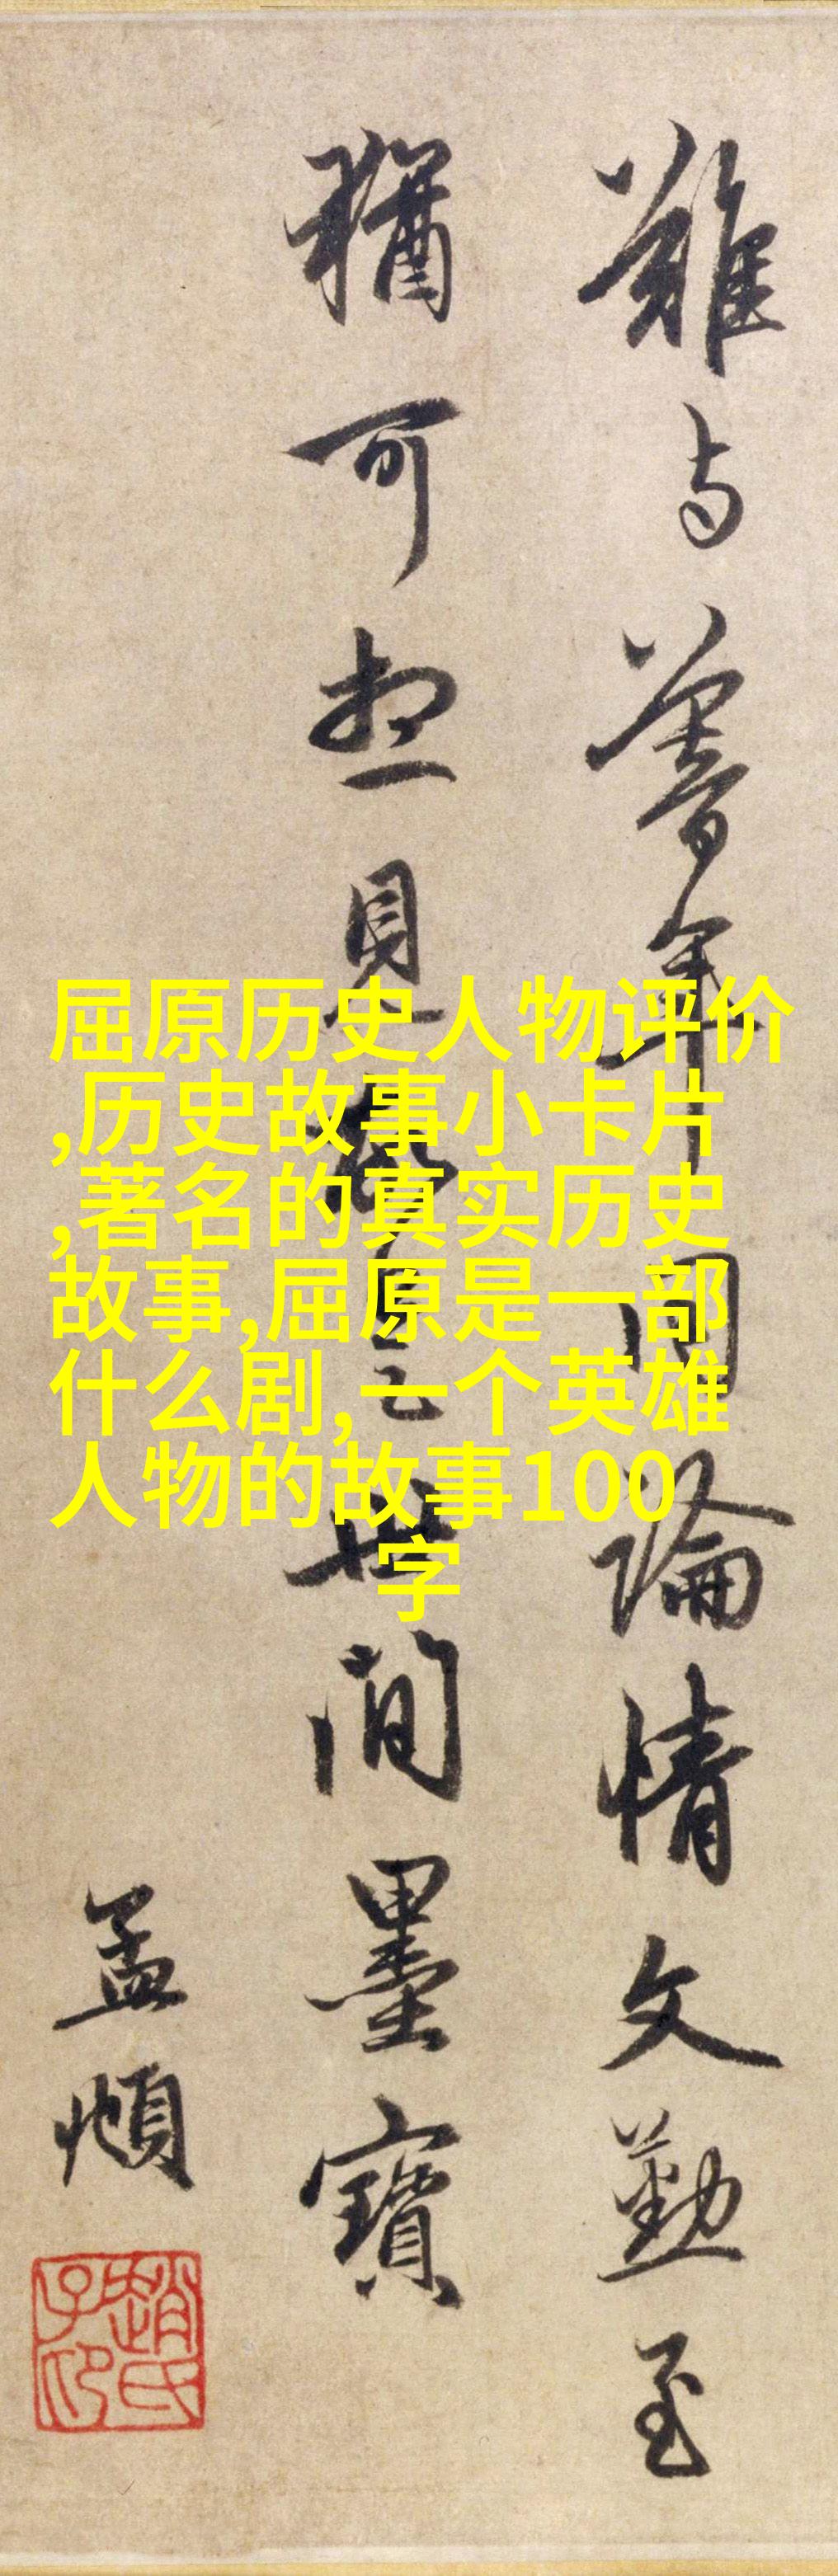 難与暮年同論情文勤至
猶可想見世間墨寶
孟頫
趙氏子昂
屈原历史人物评价
,历史故事小卡片
,著名的真实历史
故事,屈原是一部
什么剧,一个英雄
人物的故事100
字